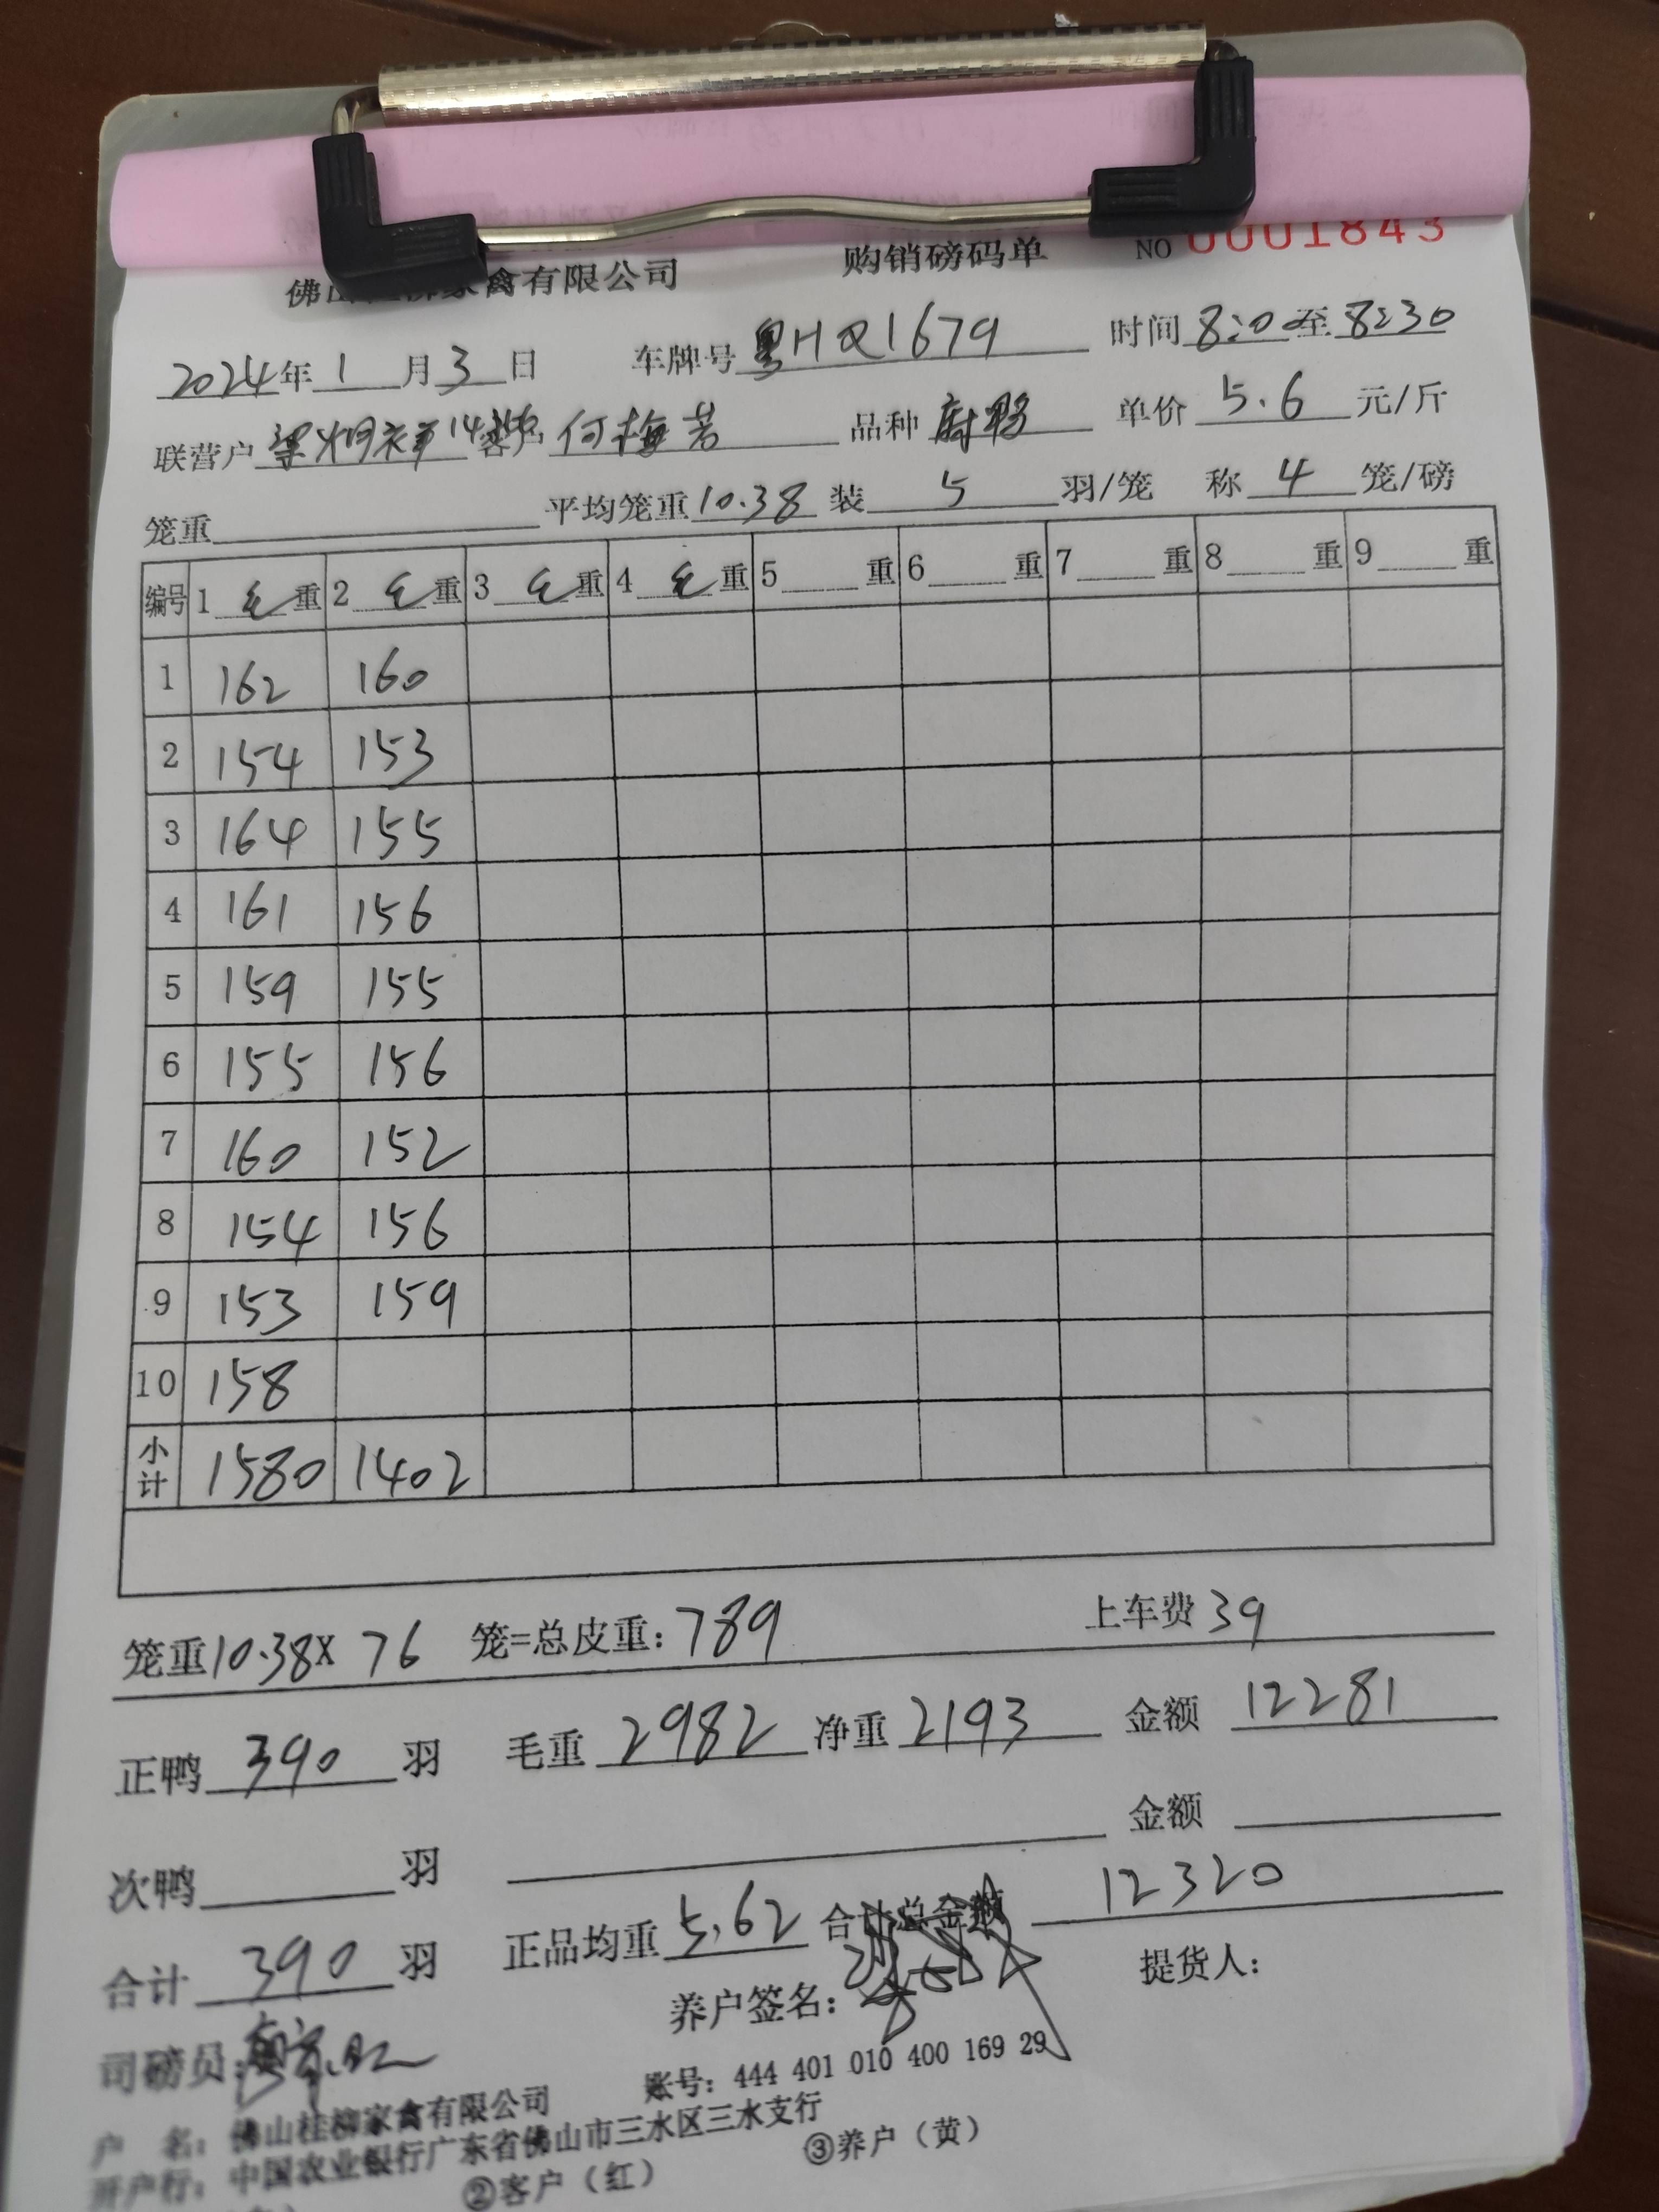 佛山桂柳家禽有限公司 购销磅码单 NO 0001843
2024年1月3日 车牌号粤HQ1679 时间8:00至8:30
联营户 客户何梅芳 品种 单价5.6元/斤
笼重 平均笼重10.38装5羽/笼 称4笼/磅
编号 1毛重 2毛重 3毛重 4毛重 5重 6重 7重 8重 9重
1 162 160
2 154 153
3 164 155
4 161 156
5 159 155
6 155 156
7 160 152
8 154 156
9 153 159
10 158
小计 1580 1402
笼重10.38X 76 笼=总皮重:789 上车费39
正鸭390羽 毛重2982净重2193 金额12281
次鸭羽 金额
合计390羽 正品均重5.62 合计总金额12320
司磅员: 养户签名: 提货人:
户 名:佛山桂柳家禽有限公司 账号:444 401 010 400 169 29
开户行:中国农业银行广东省佛山市三水区三水支行
②客户(红) ③养户(黄)